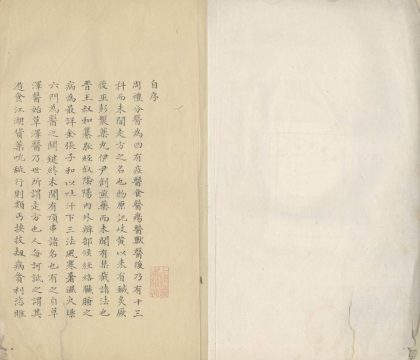 自序
周禮分醫為四有疾醫食醫瘍醫獸醫後乃有十三
科而未聞走方之名也物原記岐黃以來有鍼灸厥
後巫彭製藥丸伊尹創煎藥而未聞有禁截諸法也
晉王叔和纂脈經叙陰陽內外辨部候經絡臟腑之
病為最詳金張子和以吐汗下三法風寒暑濕火燥
六門為醫之關鍵終未聞有頂串諸名也有之自草
澤醫始草澤醫乃世所謂走方也人每訶詆之謂其
遊食江湖貨藥吮舐行則類丐挾技劫病貪利恣睢